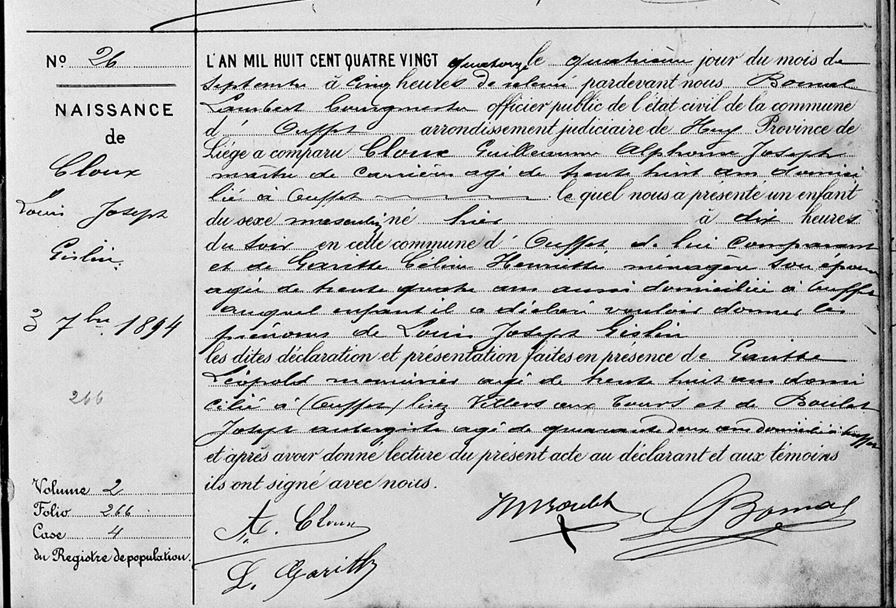 N° 26
NAISSANCE
de
Cloux
Louis Joseph
Gislin.
3 7bre 1894
266
Volume 2
Folio 266
Case 4
du Registre de population.
L'AN MIL HUIT CENT QUATRE VINGT quatorze le quatrième jour du mois de
Septembre à cinq heures de relevé pardevant nous Bomal
Lambert officier public de l'état civil de la commune
d' Ouffet arrondissement judiciaire de Huy Province de
Liége a comparu Cloux Guillaume Alphonse Joseph
maître de carrières agé de trente huit ans domici
lié à Ouffet le quel nous a présenté un enfant
du sexe masculin né hier à dix heures
du soir en cette commune d' Ouffet, de lui comparant
et de Garitte Céline Henriette ménagère son épouse
agée de trente quatre ans aussi domiciliée à Ouffet
auquel enfant il a déclaré vouloir donner les
prénoms de Louis Joseph Gislin
les dites déclaration et présentation faites en présence de Garitte
Léopold agé de trente huit ans domi
cilié à (Ouffet) lisez Villers aux Tours et de Boulet
Joseph aubergiste agé de quarante deux ans domicilié à Ouffet
et après avoir donné lecture du présent acte au déclarant et aux témoins
ils ont signé avec nous.
A. Cloux
Boulet
L. Bomal
L. Garitte